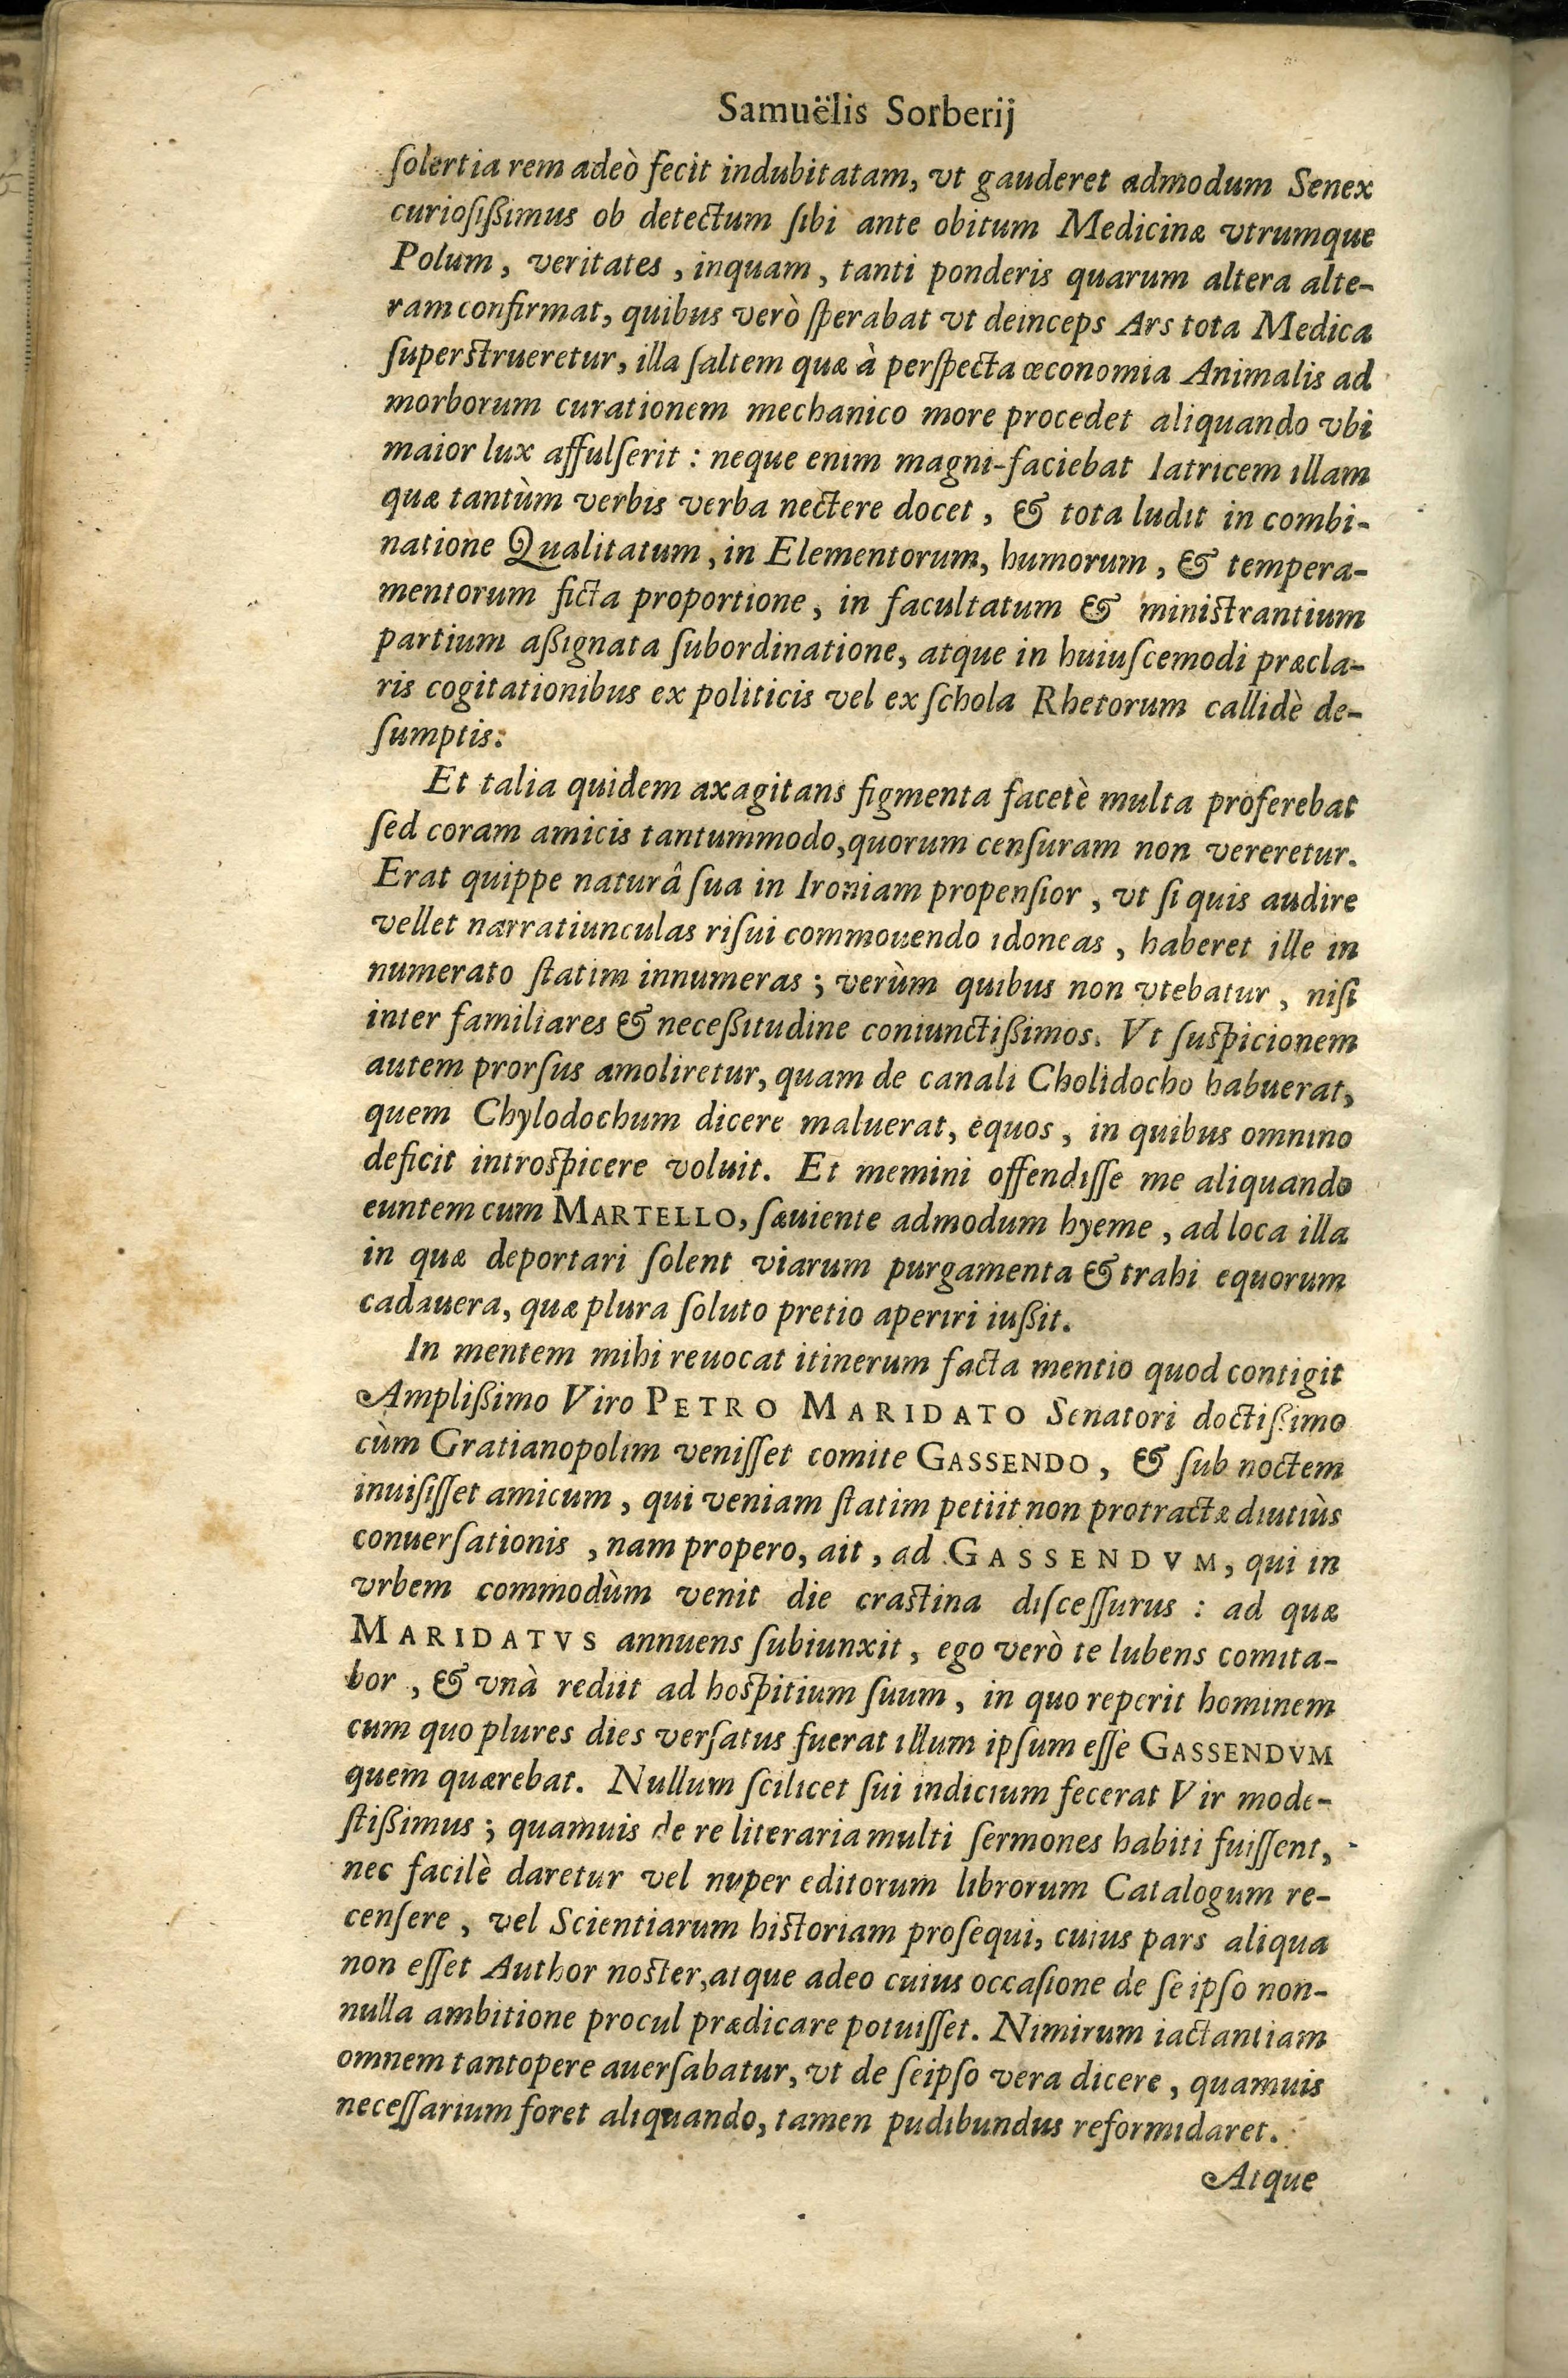 Samuëlis Sorberij
ſolertia rem adeò fecit indubitatam, vt gauderet admodum Senex
curioſißimus ob detectum ſibi ante obitum Medicinæ vtrumque
Polum, veritates, inquam, tanti ponderis quarum altera alte-
ram confirmat, quibus verò ſperabat vt deinceps Ars tota Medica
ſuperſtrueretur, illa ſaltem quæ à perſpecta œconomia Animalis ad
morborum curationem mechanico more procedet aliquando vbi
maior lux affulſerit : neque enim magni-faciebat Iatricem illam
quæ tantùm verbis verba nectere docet, & tota ludit in combi-
natione Qualitatum, in Elementorum, humorum, & tempera-
mentorum ficta proportione, in facultatum & miniſtrantium
partium aßignata ſubordinatione, atque in huiuſcemodi præcla-
ris cogitationibus ex politicis vel ex ſchola Rhetorum callidè de-
ſumptis.
Et talia quidem axagitans figmenta facetè multa proferebat
ſed coram amicis tantummodo, quorum cenſuram non vereretur.
Erat quippe naturâ ſua in Ironiam propenſior, vt ſi quis audire
vellet narratiunculas riſui commouendo idoneas, haberet ille in
numerato ſtatim innumeras ; verùm quibus non vtebatur, niſi
inter familiares & neceßitudine coniunctißimos. Vt ſuſpicionem
autem prorſus amoliretur, quam de canali Cholidocho habuerat,
quem Chylodochum dicere maluerat, equos, in quibus omnino
deficit introſpicere voluit. Et memini offendiſſe me aliquando
euntem cum MARTELLO, ſæuiente admodum hyeme, ad loca illa
in quæ deportari ſolent viarum purgamenta & trahi equorum
cadauera, quæ plura ſoluto pretio aperiri iußit.
In mentem mihi reuocat itinerum facta mentio quod contigit
Amplißimo Viro PETRO MARIDATO Senatori doctißimo
cùm Gratianopolim veniſſet comite GASSENDO, & ſub noctem
inuiſiſſet amicum, qui veniam ſtatim petiit non protractæ diutiùs
conuerſationis, nam propero, ait, ad GASSENDVM, qui in
vrbem commodùm venit die craſtina diſceſſurus : ad quæ
MARIDATVS annuens ſubiunxit, ego verò te lubens comita-
bor, & vnà rediit ad hoſpitium ſuum, in quo reperit hominem
cum quo plures dies verſatus fuerat illum ipſum eſſe GASSENDVM
quem quærebat. Nullum ſcilicet ſui indicium fecerat Vir mode-
ſtißimus ; quamuis de re literaria multi ſermones habiti fuiſſent,
nec facilè daretur vel nuper editorum librorum Catalogum re-
cenſere, vel Scientiarum hiſtoriam proſequi, cuius pars aliqua
non eſſet Author noſter, atque adeo cuius occaſione de ſe ipſo non-
nulla ambitione procul prædicare potuiſſet. Nimirum iactantiam
omnem tantopere auerſabatur, vt de ſeipſo vera dicere, quamuis
neceſſarium foret aliquando, tamen pudibundus reformidaret.
Atque